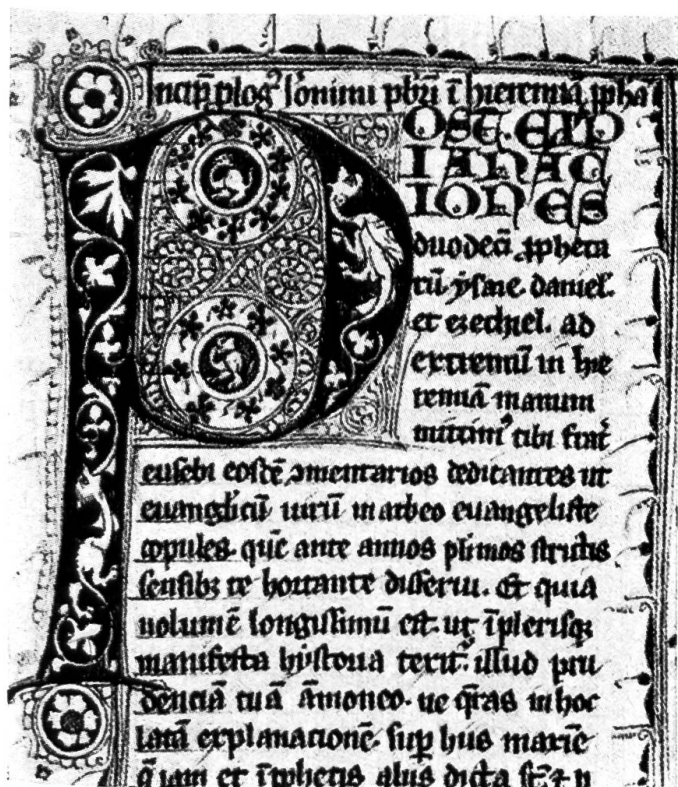 Incip̄ plogꝰ Ieronimi pb̄ri ī hieremiā ꝓpha
POST. EXP
LANAC
IONES
duodeci ꝓpheta
rū ysaie. daniel.
et ezechiel. ad
extremū in hie
remiā manum
mittimꝰ tibi
eusebi ꝯmentarios dedicantes ut
euangl̄icū uirū matheo euangeliste
copules. quē ante annos pl̄imos strictis
sensibꝫ te hortante disserui. Et quia
uolumē longissimū est. ut ī plerisqꝫ
manifesta hystoria illud pru
denciā tuā āmoneo. ne q̄ras in hoc
latā explanationē. sup̄ hiis maxīe
q̄ iam et ī ꝓphetis aliis dicta